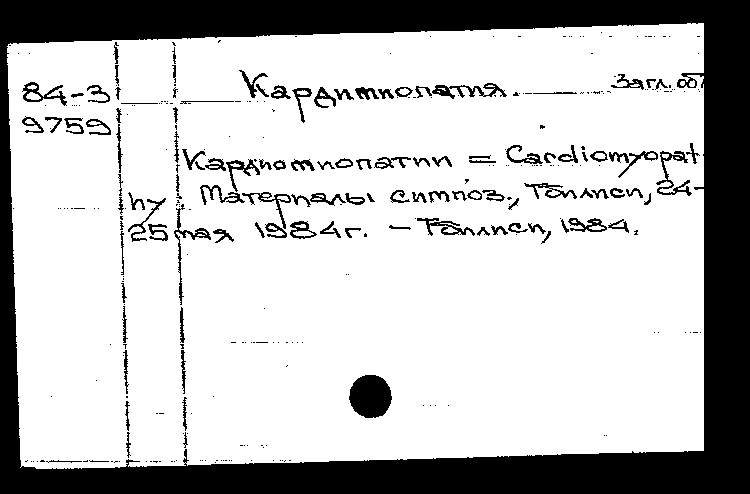 84-3 Кардимиопатия. Загл. об
9759
Кардиомиопатии = Cardiomyopat-
hy : Материалы симпоз., Тбилиси, 24-
25 мая 1984 г. – Тбилиси, 1984.